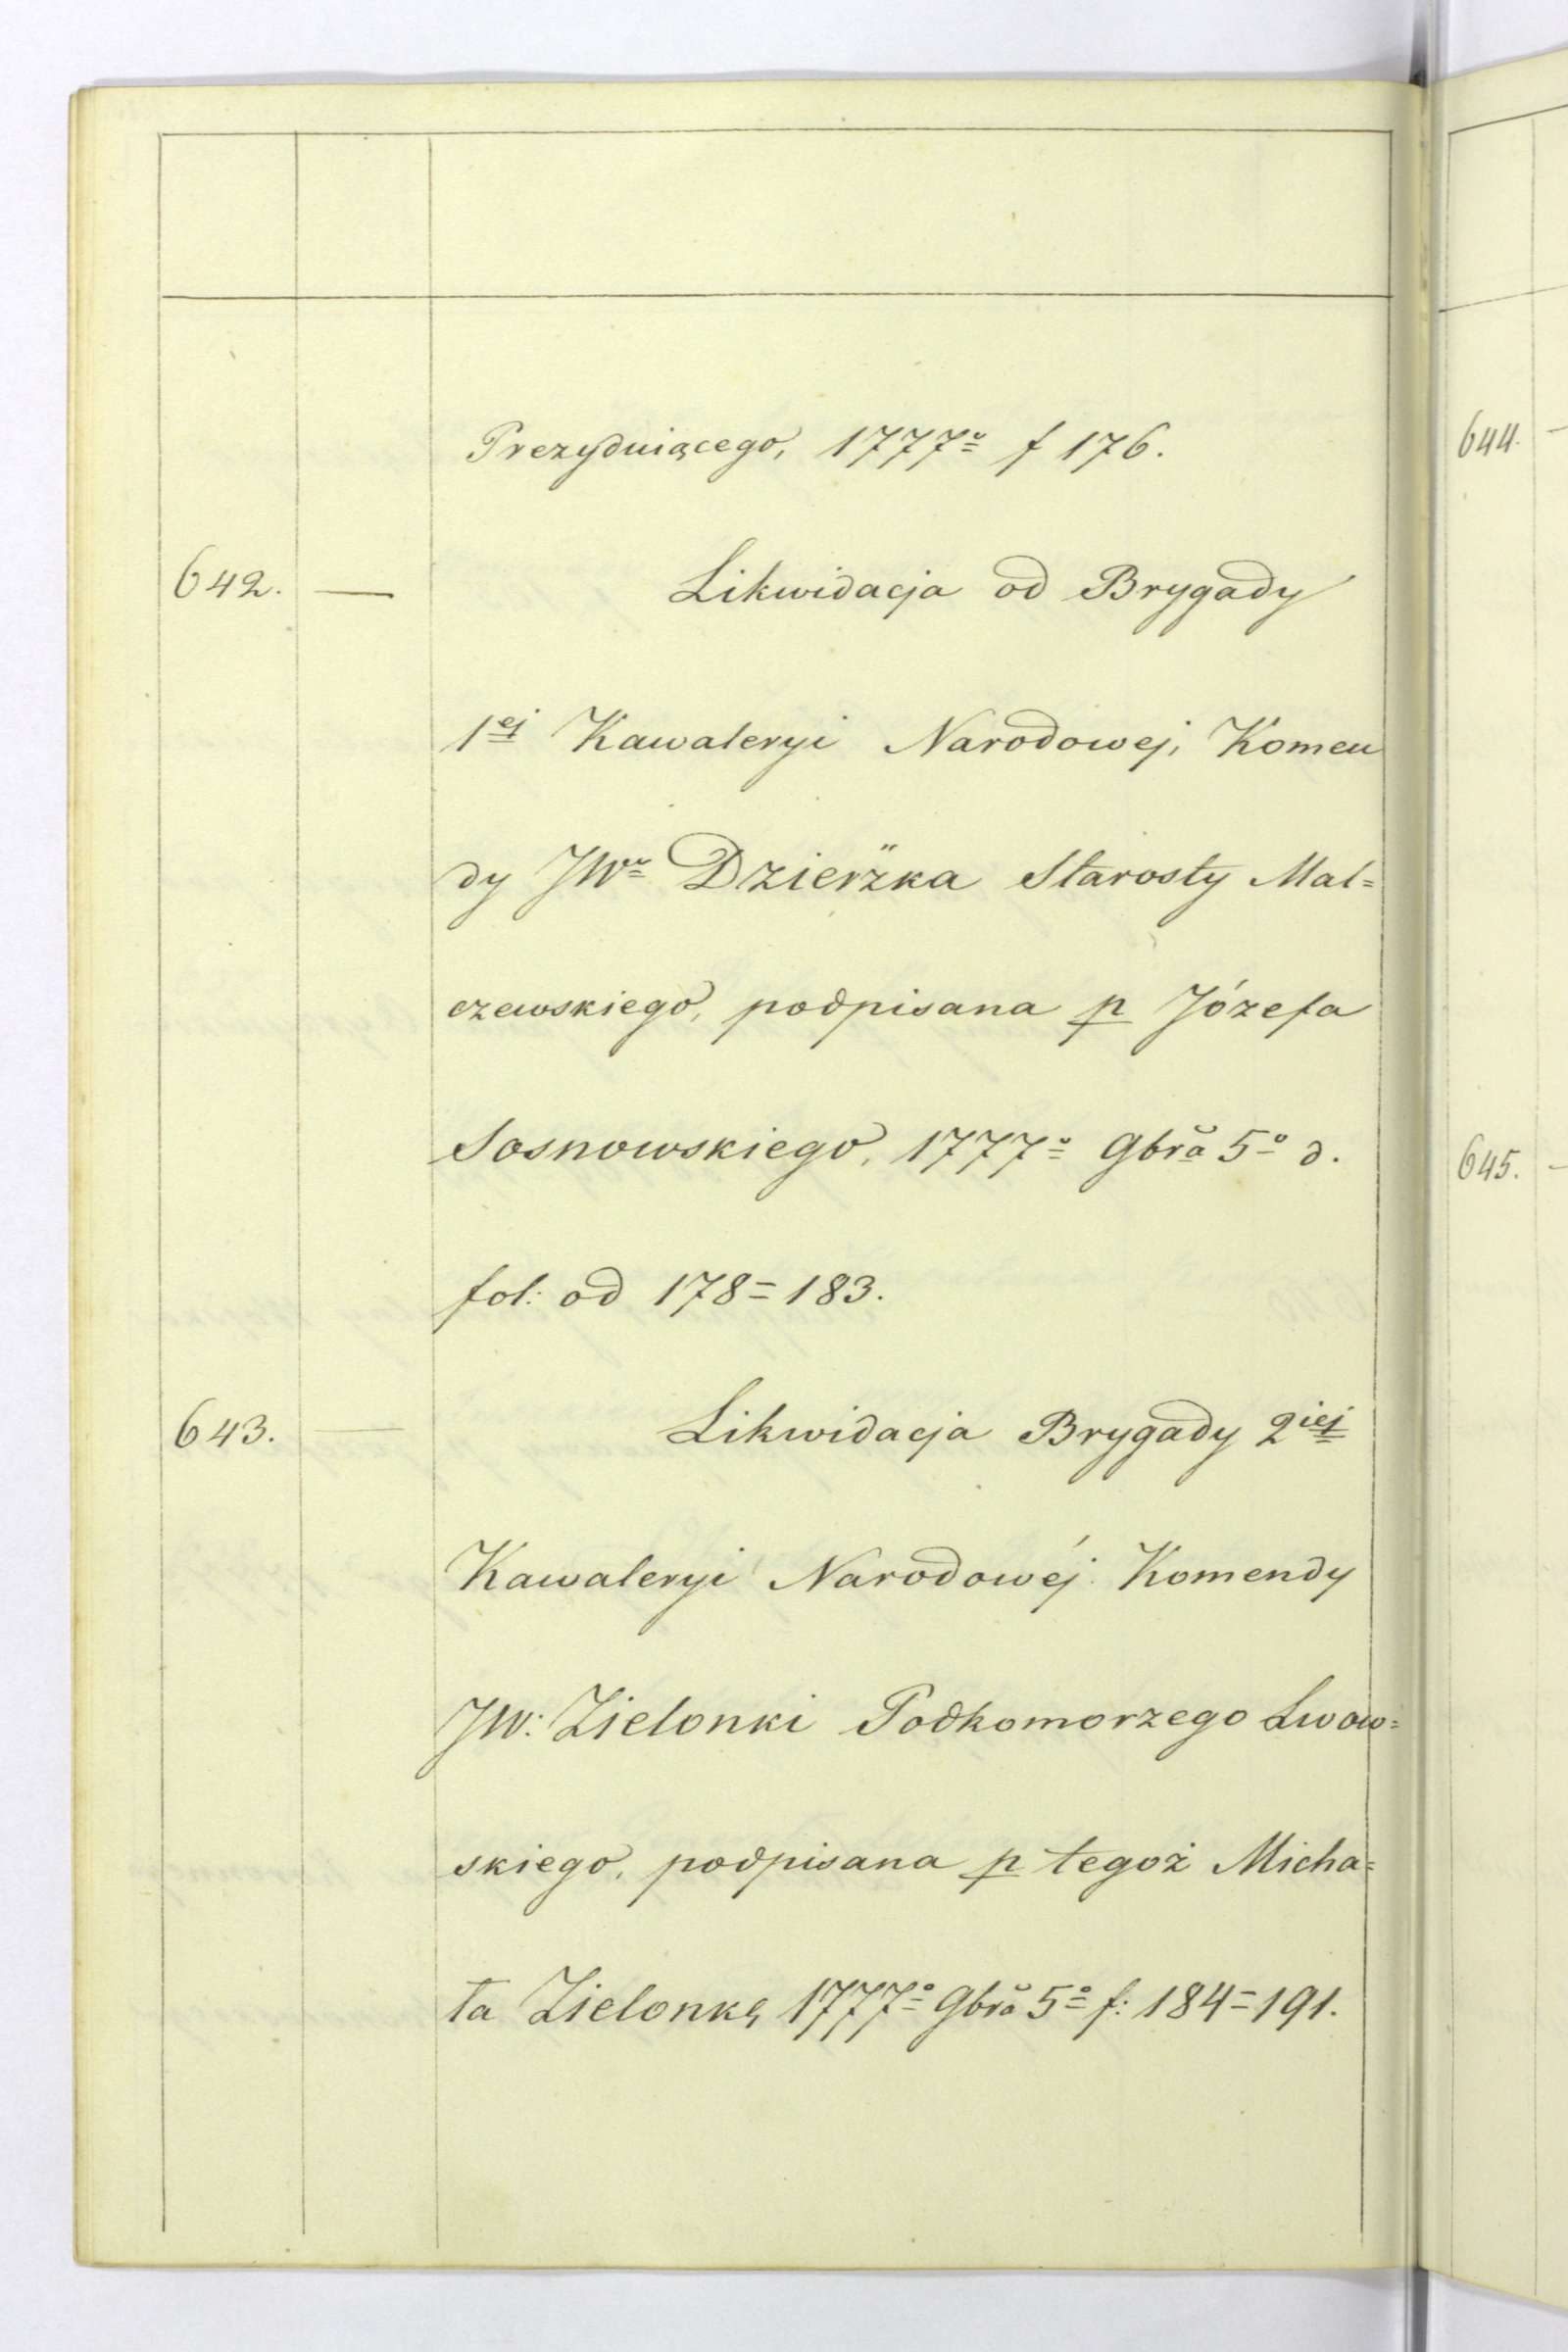 Prezyduiącego, 1777º f 176.
642. — Likwidacja od Brygady
1ej Kawaleryi Narodowej, Komen
dy JWº Dzierżka Starosty Mal=
czewskiego, podpisana p Józefa
Sosnowskiego, 1777º 9bra 5º d.
fol: od 178=183.
643. — Likwidacja Brygady 2iej
Kawaleryi Narodowéj Komendy
JW: Zielonki Podkomorzego Lwow=
skiego, podpisana p tegoż Micha=
ła Zielonkę 1777º 9bra 5º f: 184=191.
644. —
645. —